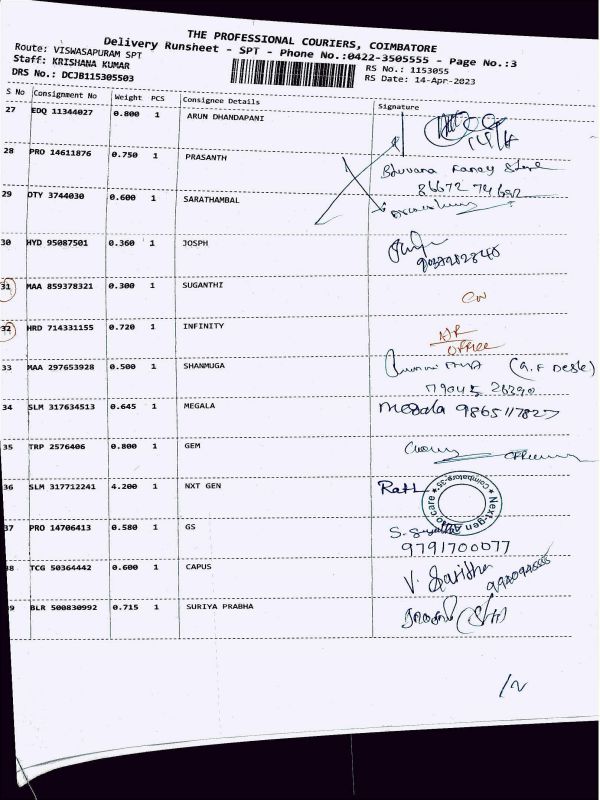 THE PROFESSIONAL COURIERS, COIMBATORE
Delivery Runsheet - SPT - Phone No.:0422-3505555 - Page No.:3
Route: VISWASAPURAM SPT
Staff: KRISHANA KUMAR
DRS No.: DCJB115305503
RS No.: 1153055
RS Date: 14-Apr-2023
S No Consignment No Weight PCS Consignee Details Signature
27 EDQ 11344027 0.800 1 ARUN DHANDAPANI
28 PRO 14611876 0.750 1 PRASANTH
86672 74692
29 DTY 3744030 0.600 1 SARATHAMBAL
30 HYD 95087501 0.360 1 JOSPH
31 MAA 859378321 0.300 1 SUGANTHI
32 HRD 714331155 0.720 1 INFINITY
OFFICE
33 MAA 297653928 0.500 1 SHANMUGA
79045 26290
34 SLM 317634513 0.645 1 MEGALA Megala 9865117827
35 TRP 2576406 0.800 1 GEM
36 SLM 317712241 4.200 1 NXT GEN
Next-gen Auto care * Coimbatore-35 *
37 PRO 14706413 0.580 1 GS
9791700077
38 TCG 50364442 0.600 1 CAPUS
39 BLR 500830992 0.715 1 SURIYA PRABHA